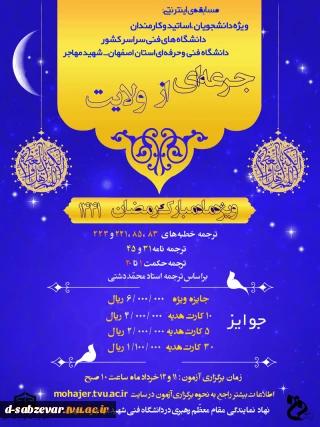 مسابقه‌ی اینترنتی
ویژه دانشجویان، اساتید و کارمندان
دانشگاه های فنی سراسر کشور
دانشگاه فنی و حرفه‌ای استان اصفهان_ شهید مهاجر
جرعه‌ای از ولایت
ویژه ماه مبارک رمضان ۱۴۴۱
ترجمه خطبه‌های ۸۳، ۸۵، ۲۲۱ و ۲۲۳
ترجمه نامه ۳۱ و ۴۵
ترجمه حکمت ۱ تا ۲۰
براساس ترجمه استاد محمد دشتی
جوایز
جایزه ویژه ۶/۰۰۰/۰۰۰ ریال
۱۰ کارت هدیه ۴/۰۰۰/۰۰۰ ریال
۵ کارت هدیه ۲/۰۰۰/۰۰۰ ریال
۳۰ کارت هدیه ۱/۱۰۰/۰۰۰ ریال
زمان برگزاری آزمون: ۱۱ و ۱۲ خرداد ماه ساعت ۱۰ صبح
اطلاعات بیشتر راجع به نحوه برگزاری آزمون در سایت mohajer.tvu.ac.ir
نهاد نمایندگی مقام معظم رهبری در دانشگاه فنی
d-sabzevar.tvu.ac.ir